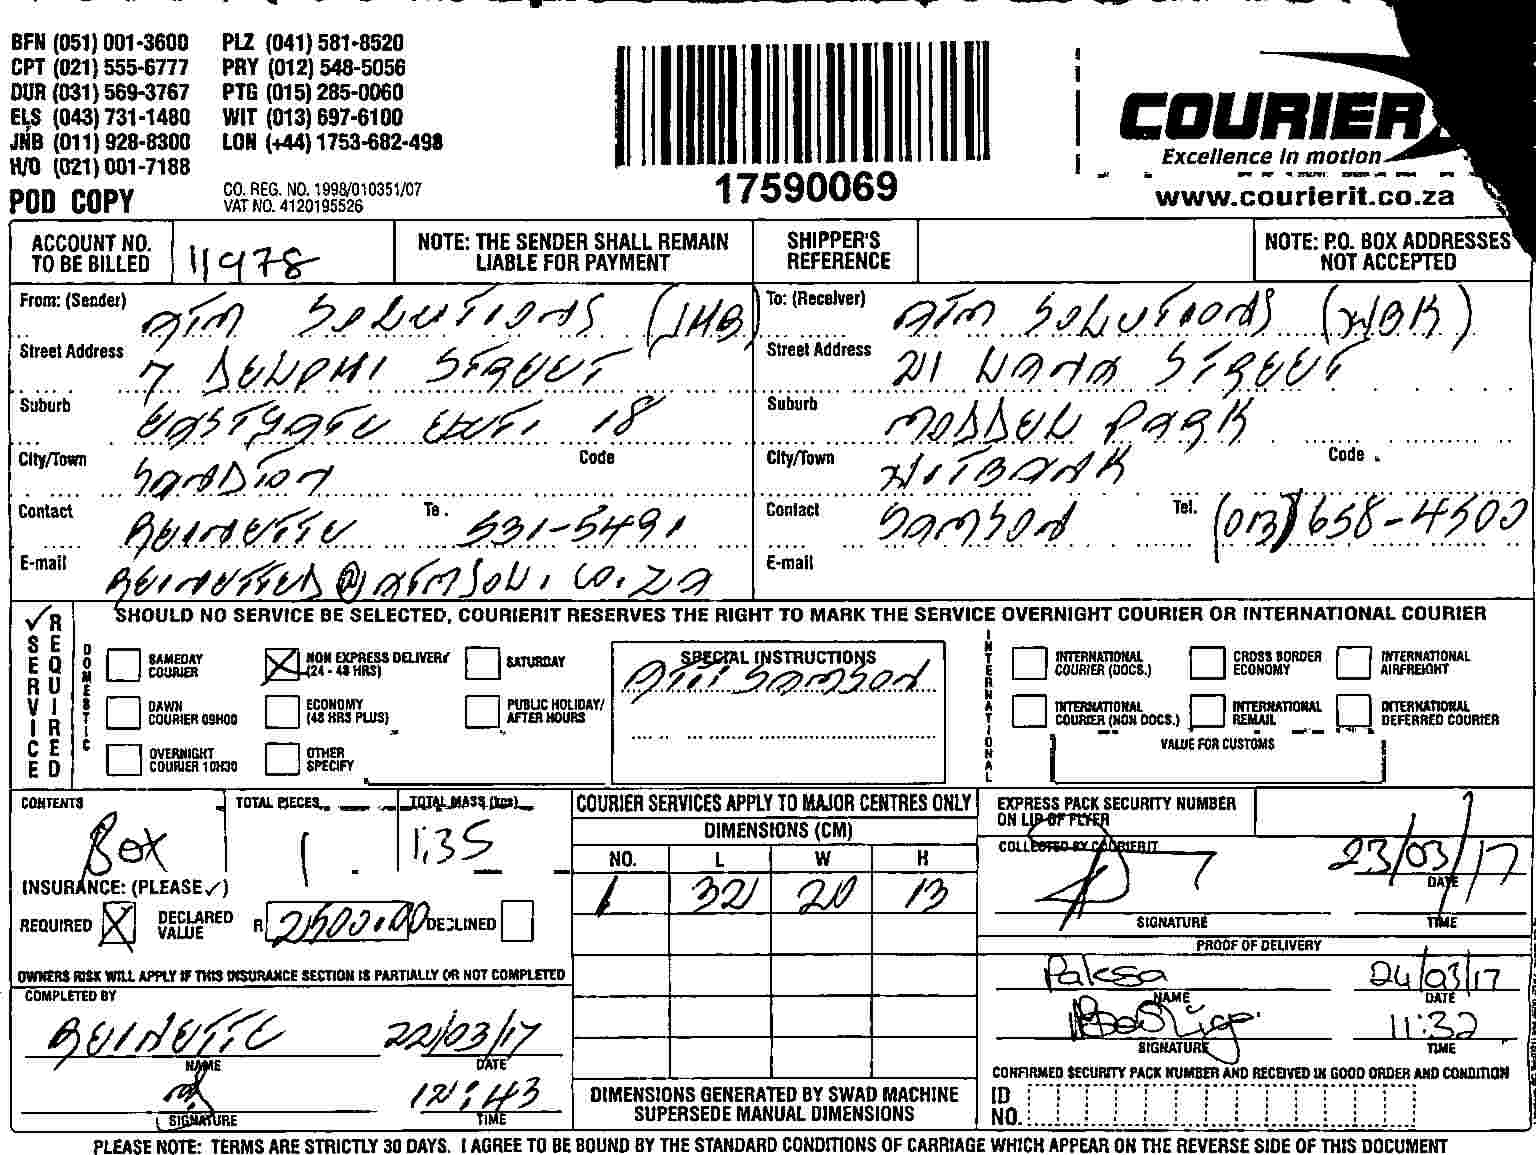 BFN (051) 001-3600 PLZ (041) 581-8520
CPT (021) 555-6777 PRY (012) 548-5056
DUR (031) 569-3767 PTG (015) 285-0060
ELS (043) 731-1480 WIT (013) 697-6100
JNB (011) 928-8300 LON (+44) 1753-682-498
H/O (021) 001-7188
POD COPY
CO. REG. NO. 1998/010351/07
VAT NO. 4120195526
17590069
COURIER
Excellence in motion
www.courierit.co.za
ACCOUNT NO. TO BE BILLED 11978
NOTE: THE SENDER SHALL REMAIN LIABLE FOR PAYMENT
SHIPPER'S REFERENCE
NOTE: P.O. BOX ADDRESSES NOT ACCEPTED
From: (Sender) ATM SOLUTIONS (JHB)
Street Address 7 DELPHI STREET
Suburb EASTGATE EXT. 18
City/Town SANDTON Code
Contact REINETTE Te . 531-5491
E-mail REINETTED@ATMSOL.CO.ZA
To: (Receiver) ATM SOLUTIONS (WBK)
Street Address 21 DANA STREET
Suburb MODDEL PARK
City/Town WITBANK Code
Contact SAMSON Tel. (013) 658-4500
E-mail
✓ SERVICE REQUIRED
SHOULD NO SERVICE BE SELECTED, COURIERIT RESERVES THE RIGHT TO MARK THE SERVICE OVERNIGHT COURIER OR INTERNATIONAL COURIER
DOMESTIC
SAMEDAY COURIER
NON EXPRESS DELIVERY (24 - 48 HRS)
SATURDAY
DAWN COURIER 09H00
ECONOMY (48 HRS PLUS)
PUBLIC HOLIDAY/ AFTER HOURS
OVERNIGHT COURIER 10H30
OTHER SPECIFY
SPECIAL INSTRUCTIONS
ATT SAMSON
INTERNATIONAL
INTERNATIONAL COURIER (DOCS.)
CROSS BORDER ECONOMY
INTERNATIONAL AIRFREIGHT
INTERNATIONAL COURIER (NON DOCS.)
INTERNATIONAL REMAIL
INTERNATIONAL DEFERRED COURIER
VALUE FOR CUSTOMS
CONTENTS Box
TOTAL PIECES 1
TOTAL MASS (kgs) 1,35
INSURANCE: (PLEASE ✓)
REQUIRED X DECLARED VALUE R 2500.00 DECLINED
OWNERS RISK WILL APPLY IF THIS INSURANCE SECTION IS PARTIALLY OR NOT COMPLETED
COMPLETED BY
REINETTE 22/03/17
NAME DATE
12:43
SIGNATURE TIME
COURIER SERVICES APPLY TO MAJOR CENTRES ONLY
DIMENSIONS (CM)
NO. L W H
1 32 20 13
DIMENSIONS GENERATED BY SWAD MACHINE SUPERSEDE MANUAL DIMENSIONS
EXPRESS PACK SECURITY NUMBER ON LIP OF FLYER
COLLECTED BY COURIERIT
23/03/17
DATE
SIGNATURE TIME
PROOF OF DELIVERY
Paksa 24/03/17
NAME DATE
11:32
SIGNATURE TIME
CONFIRMED SECURITY PACK NUMBER AND RECEIVED IN GOOD ORDER AND CONDITION
ID NO.
PLEASE NOTE: TERMS ARE STRICTLY 30 DAYS. I AGREE TO BE BOUND BY THE STANDARD CONDITIONS OF CARRIAGE WHICH APPEAR ON THE REVERSE SIDE OF THIS DOCUMENT